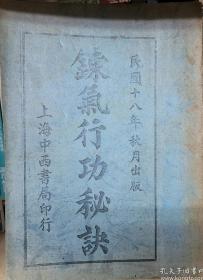 民國十八年秋月出版
鍊氣行功秘訣
上海中西書局印行
孔夫子旧书网